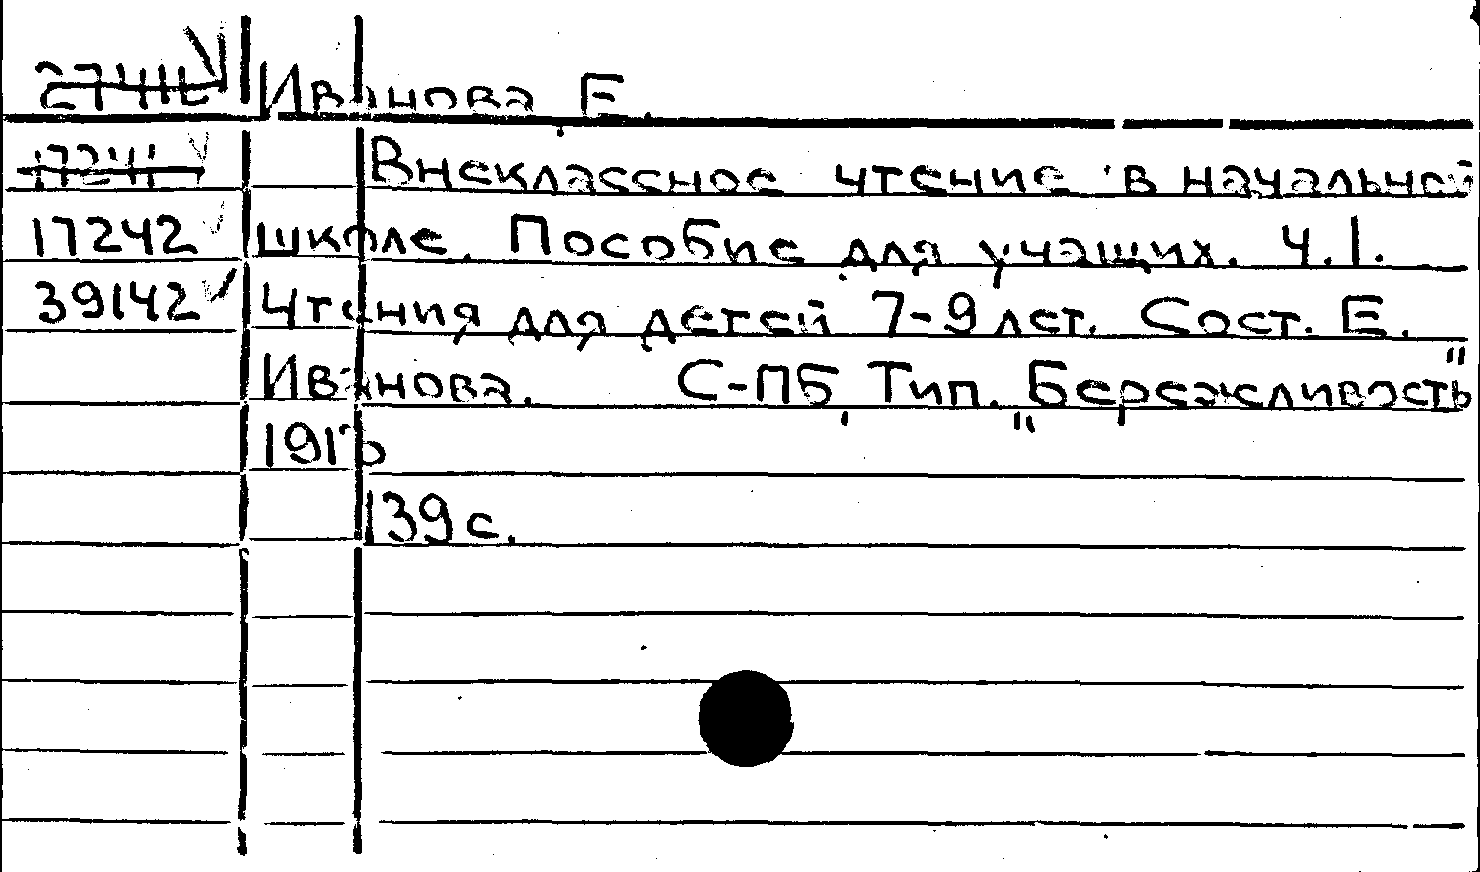 Иванова, Е.
Внеклассное чтение в начальной
17242 школе. Пособие для учащих. Ч.1.
39142 Чтения для детей 7-9 лет. Сост. Е.
Иванова. С-ПБ, Тип. „Бережливость"
139 с.